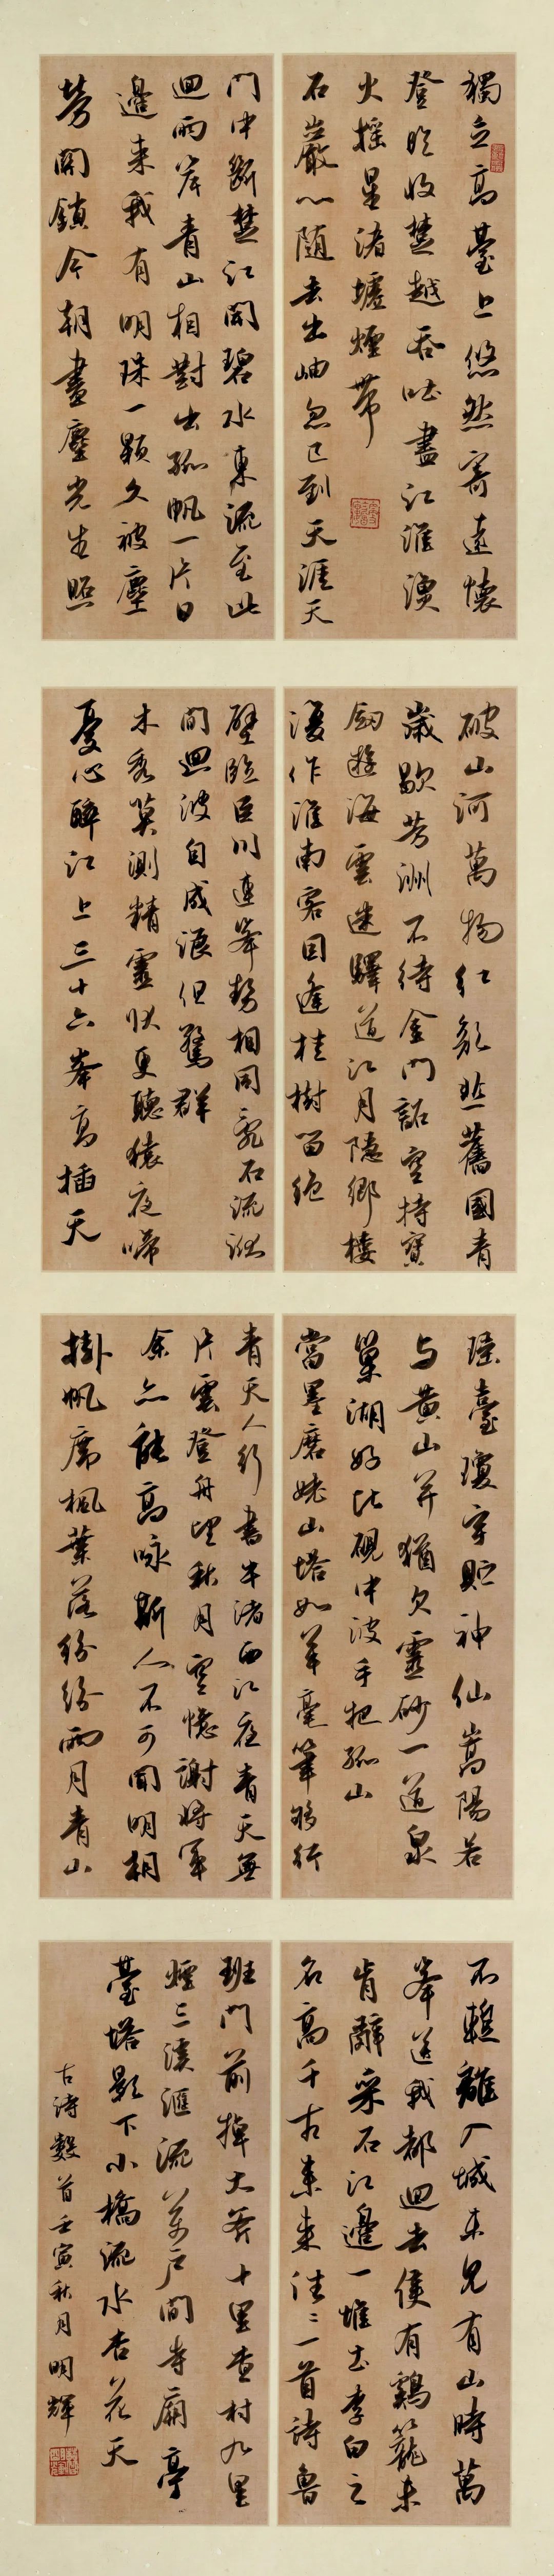 獨立高臺上悠然寄遠懷
登臨收楚越吞吐盡江淮漢
火搖星渚墟煙帶
石巖心随去出岫忽已到天涯天
門中斷楚江開碧水東流至此
迴兩岸青山相對出孤帆一片日
邊來我有明珠一顆久被塵
勞關鎖今朝盡塵光生照
破山河萬物紅顏悲舊國青
歲歇芳洲不待金門詔空持寶
劍遊海雲迷驛道江月隱鄉樓
復作淮南客因逢桂樹留絶
壁臨巨川連峯勢相向亂石流洑
間迴波自成浪但驚群
木秀莫測精靈狀更聽猿夜啼
憂心醉江上三十六峯高插天
瑤臺瓊宇貯神仙嵩陽若
与黃山并猶欠靈砂一道泉
巢湖好比硯中波手把孤山
當墨磨姥山塔如羊毫筆夠行
青天人行書牛渚西江夜青天無
片雲登舟望秋月空憶謝將軍
余亦能高咏斯人不可聞明朝
掛帆席楓葉落紛紛兩月青山
不輕離入城未見有山時萬
峯送我都迴去僅有鷄籠未
肯辭采石江邊一堆土李白之
名高千古來來往往一首詩魯
班門前掉大斧十里查村九里
煙三溪匯流萬戶間寺廟亭
臺塔影下小橋流水杏花天
古詩數首壬寅秋月明輝